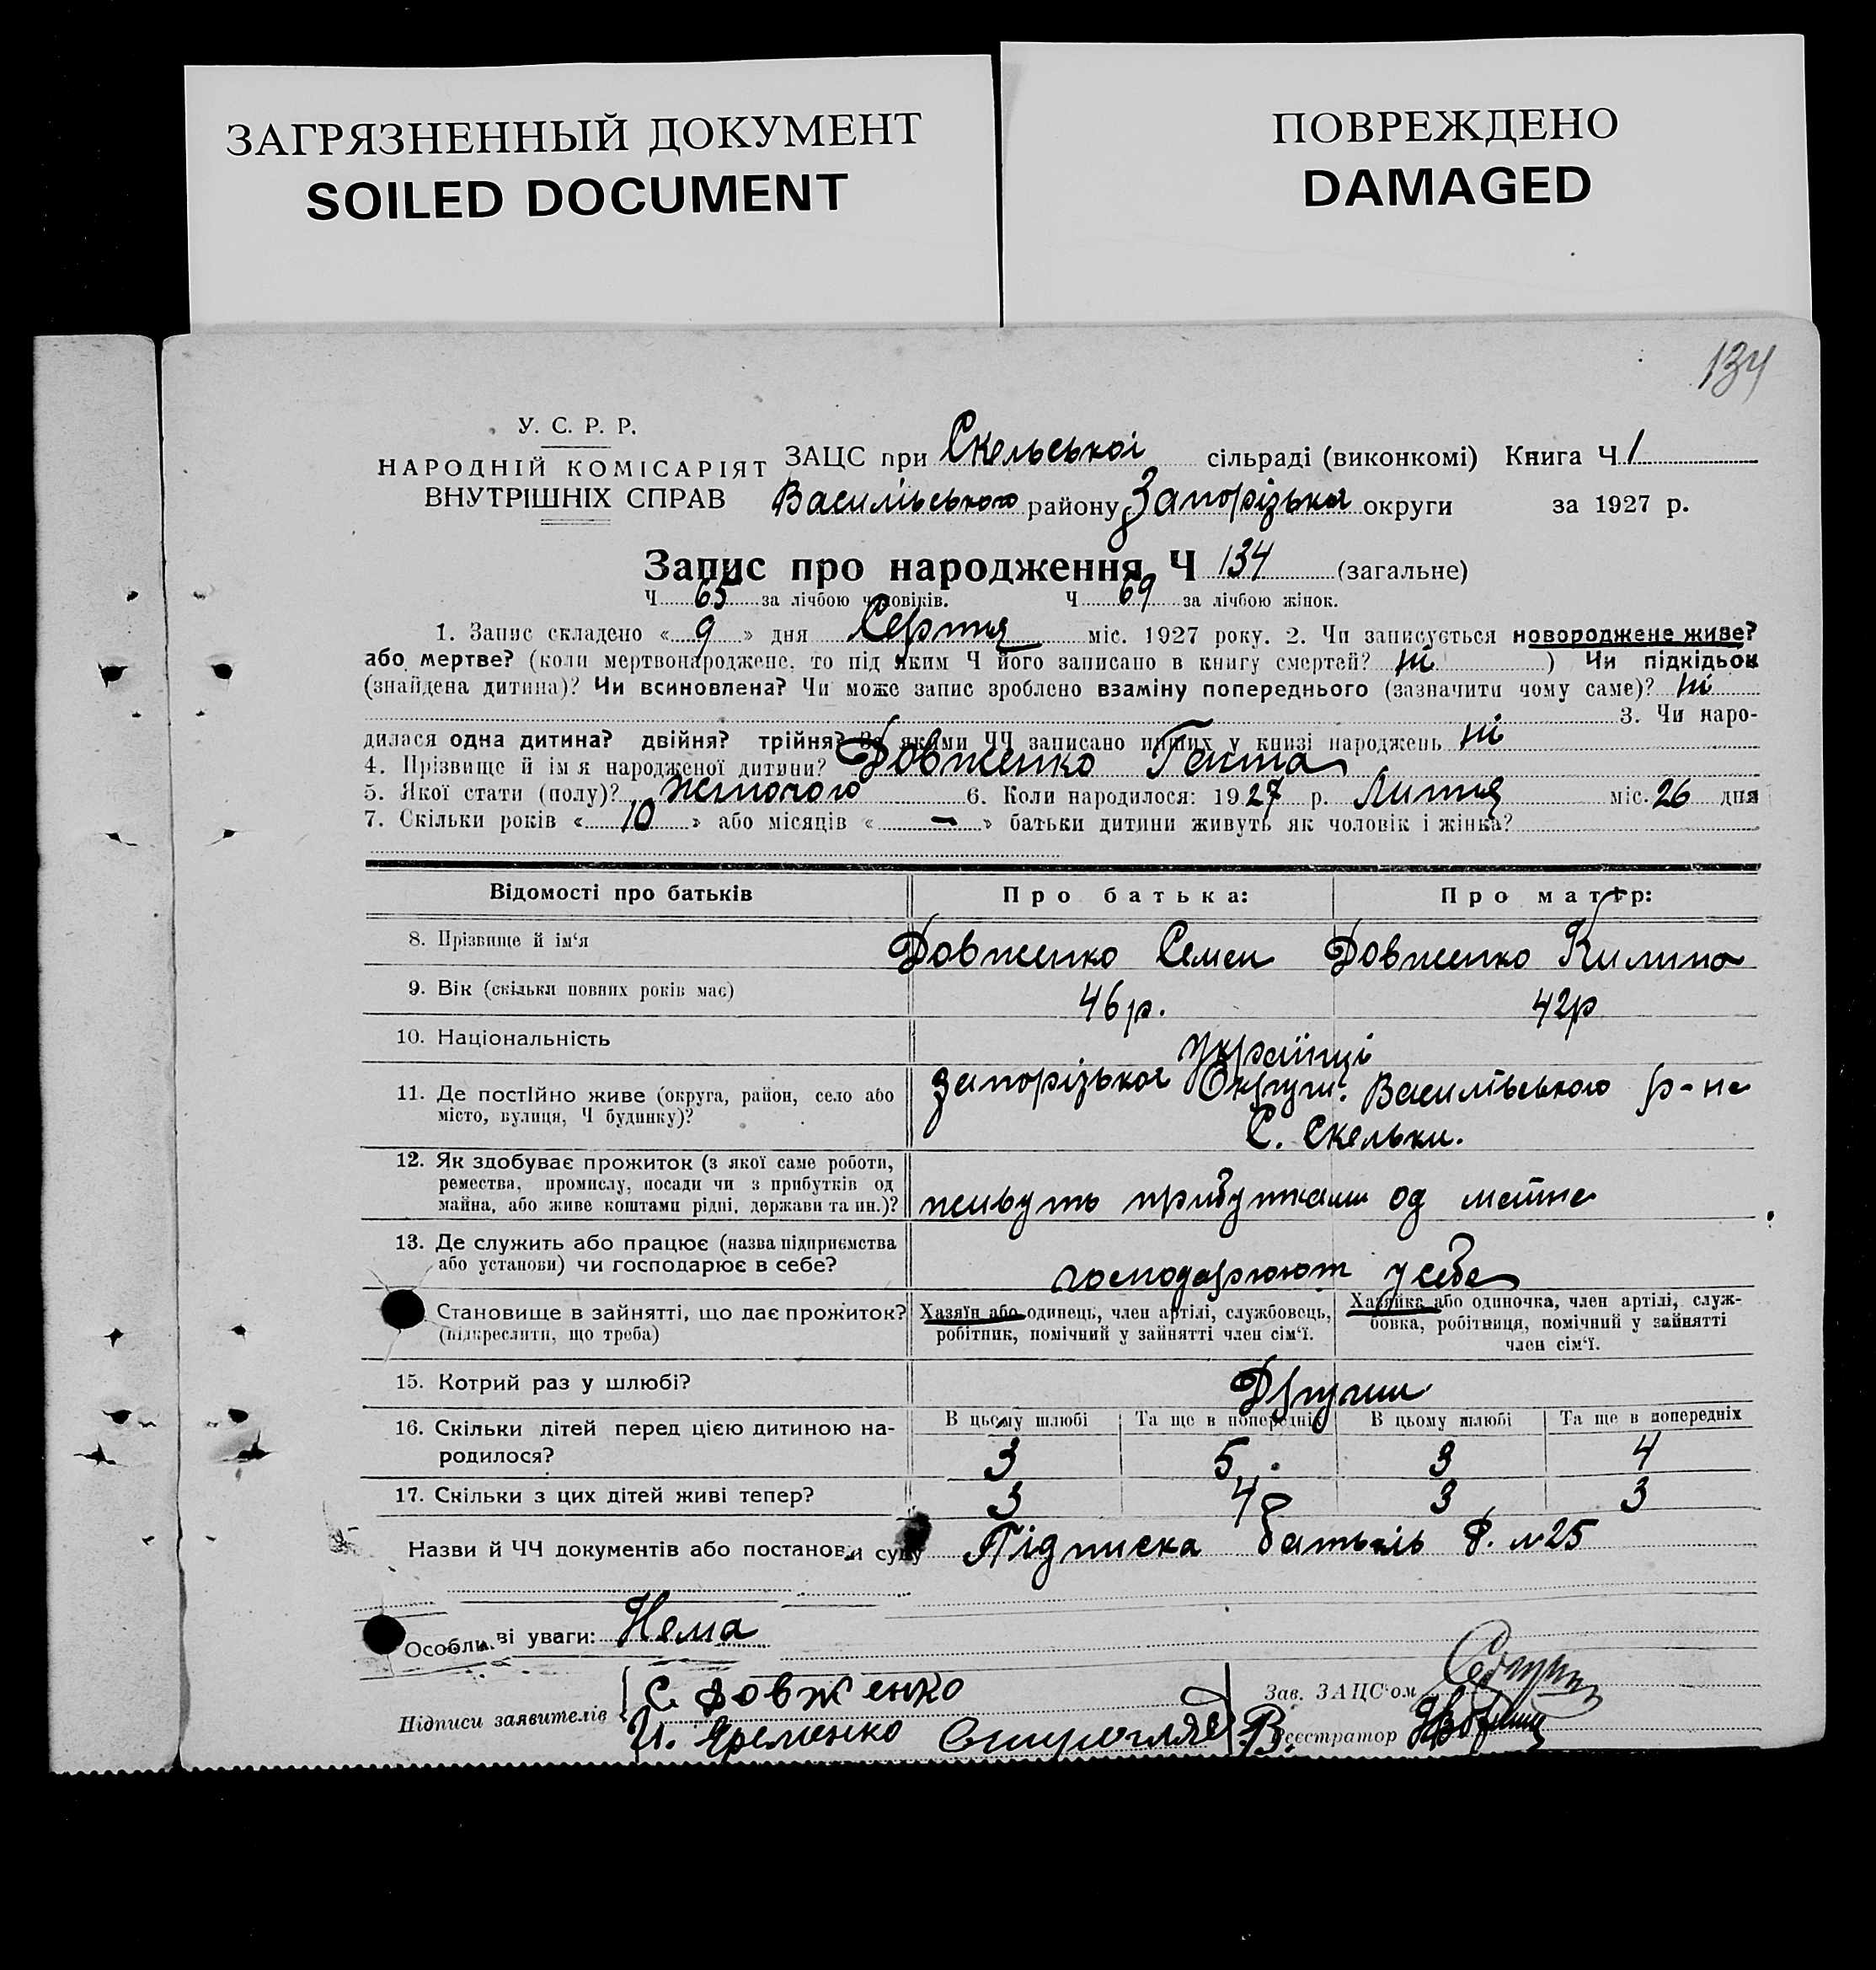 ЗАГРЯЗНЕННЫЙ ДОКУМЕНТ
SOILED DOCUMENT
ПОВРЕЖДЕНО
DAMAGED
134
У. С. Р. Р.
НАРОДНІЙ КОМІСАРІЯТ
ВНУТРІШНІХ СПРАВ
ЗАЦС при Скельської сільраді (виконкомі) Книга Ч 1
Василівського району Запорізької округи за 1927 р.
Запис про народження Ч 134 (загальне)
Ч 65 за лічбою чоловіків. Ч 69 за лічбою жінок.
1. Запис складено « 9 » дня Серпня міс. 1927 року. 2. Чи записується новороджене живе?
або мертве? (коли мертвонароджене, то під яким Ч його записано в книгу смертей? ні ) Чи підкідьок
(знайдена дитина)? Чи всиновлена? Чи може запис зроблено взаміну попереднього (зазначити чому саме)? ні
3. Чи наро-
дилася одна дитина? двійня? трійня? За якими ЧЧ записано инших у книзі народжень ні
4. Прізвище й ім я народженої дитини? Довженко Ганна
5. Якої стати (полу)? жіночого 6. Коли народилося: 1927 р. Липня міс. 26 дня
7. Скільки років « 10 » або місяців « — » батьки дитини живуть як чоловік і жінка?
Відомості про батьків Про батька: Про матір:
8. Прізвище й ім‘я Довженко Семен Довженко Килина
9. Вік (скільки повних років має) 46 р. 42 р
10. Національність Українці
11. Де постійно живе (округа, район, село або
місто, вулиця, Ч будинку)?
Запорізької Округи. Василівського р-на
С. Скельки.
12. Як здобуває прожиток (з якої саме роботи,
ремества, промислу, посади чи з прибутків од
майна, або живе коштами рідні, держави та ин.)?
живуть прибутками од майна
13. Де служить або працює (назва підприємства
або установи) чи господарює в себе?
господарюют у себе
Становище в зайнятті, що дає прожиток?
(підкреслити, що треба)
Хазяїн або одинець, член артілі, службовець,
робітник, помічний у зайнятті член сім‘ї.
Хазяйка або одиночка, член артілі, служ-
бовка, робітниця, помічний у зайнятті
член сім‘ї.
15. Котрий раз у шлюбі? Другии
16. Скільки дітей перед цією дитиною на-
родилося?
В цьому шлюбі Та ще в попередніх В цьому шлюбі Та ще в попередніх
3 5 3 4
17. Скільки з цих дітей живі тепер? 3 4 3 3
Назви й ЧЧ документів або постанови суду Підписка батьків
Особливі уваги: Нема
Підписи заявителів С. Довженко
И. Яременко
Зав. ЗАЦС‘ом
Реєстратор